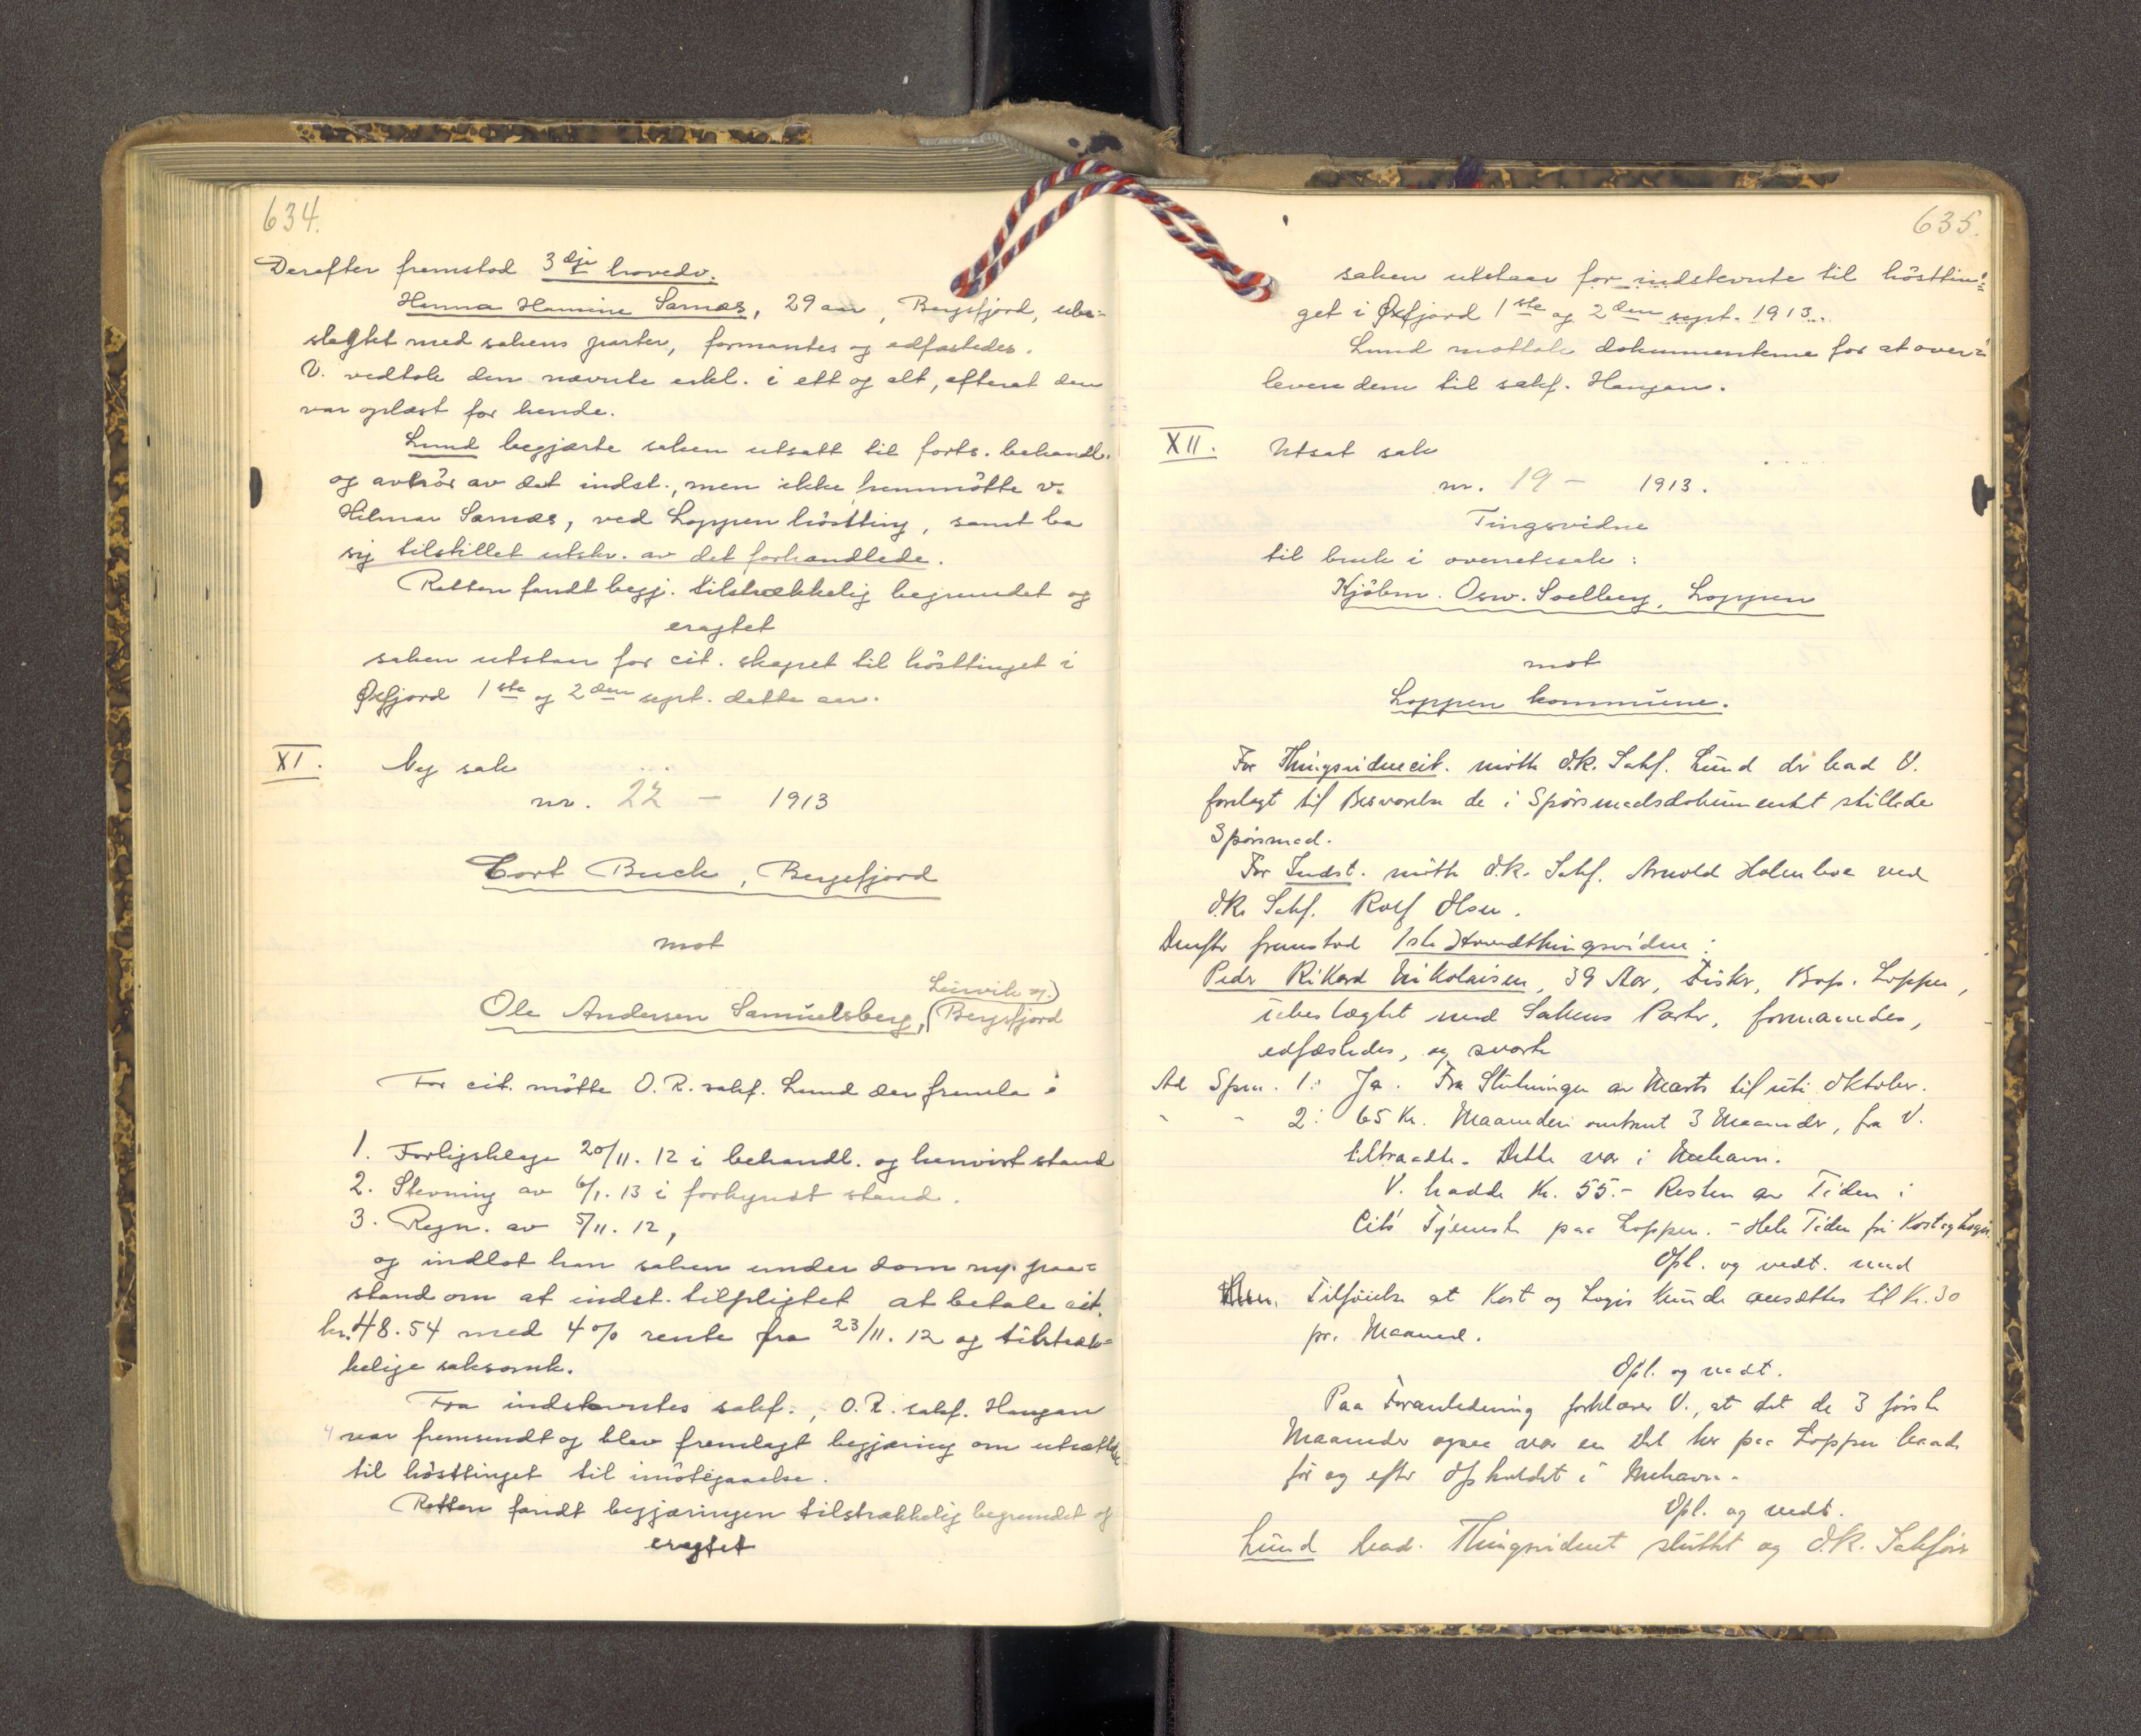 634.
Derefter fremstod 3dje hovedv.
Hanna Hansine Sarnæs, 29 aar, Bergsfjord, ube=
slegtet med sakens parter, formantes og edfæstedes.
V. vedtok den nævnte erkl. i ett og alt, efterat den
var oplæst for hende.
Lund begjærte saken utsatt til forts. behandl.
og avhör av det indst., men ikke fremmötte v.
Hilmar Sarnæs, ved Loppen höstting, samt ba
sig tilstillet utskr. av det forhandlede.
Retten fandt begj. tilstrækkelig begrundet og
eragtet
saken utstaar for cit. skapet til hösttinget i
Øxfjord 1ste og 2den sept. dette aar.
XI. Ny sak
nr. 22 - 1913
Cort Buck, Bergsfjord
mot
Lervik
Ole Andersen Samuelsberg, (Bergsfjord
For cit. mötte O.R. sakf. Lund der fremla:
1. Forligsklage 20/11. 12 i behandl. og henvist stand
2. Stevning av 6/1. 13 i forkyndt stand.
3. Regn. av 5/11. 12,
og indlot han saken under dom og paa=
stand om at indst. tilpligtet at betale cit.
kr. 48.54 med 4% rente fra 23/11. 12 og tilstræk=
kelige saksomk.
Fra indstevntes sakf., O.R. sakf. Haugan
var fremsendt og blev fremlagt begjæring om utsættelse
til hösttinget til imötegaaelse.
Retten fandt begjæringen tilstrækkelig begrundet og
eragtet
635.
saken utstaar for indstevnte til hösttin=
get i Øxfjord 1ste og 2den sept. 1913.
Lund mottok dokumenterne for at over=
levere dem til sakf. Haugan.
XII. Utsat sak
nr. 19 - 1913.
Tingsvidne
til bruk i overretssak:
Kjöbm. Osw. Soelberg, Loppen
mot
Loppen kommune.
For Thingsvidnecit. mötte O.R. Sakf. Lund der bad V.
forelagt til Besvarelse de i Spörsmaalsdokumentet stillede
Spörsmaal.
For Indst. mötte O.R. Sakf. Arnold Holmboe ved
O.R. Sakf. Rolf Olsen.
Derefter fremstod 1ste Hovedthingsvidne:
Peder Rikard Nikolaisen, 39 Aar, Fisker, Bop. Loppen,
ubeslægtet med Sakens Parter, formanedes,
edfæstedes, og svarte
Ad Spm. 1: Ja. Fra Slutningen av Marts til uti Oktober.
" " 2: 65 Kr. Maaneden omtrent 3 Maaneder, fra V.
tiltraadte. Dette var i Mehavn.
V. hadde Kr. 55.- Resten av Tiden i
Cits Tjeneste paa Loppen. - Hele Tiden fri Kost og Logis.
Opl. og vedt. med
Tilföielse at Kost og Logis kunde ansættes til Kr. 30
pr. Maaned.
Opl. og vedt.
Paa Foranledning forklarer V., at det de 3 förste
Maaneder ogsaa var en Del her paa Loppen baade
för og efter Opholdet i Mehavn.
Opl. og vedt.
Lund bad Thingsvidnet sluttet og O.R. Sakförer